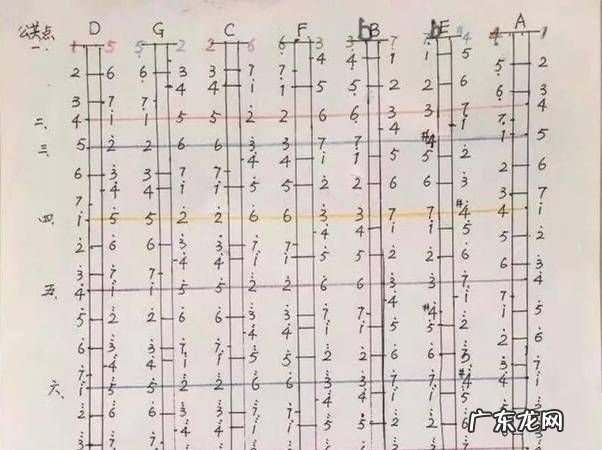 公共点 D G C F bB bE A
一、 1 5 5 2 2 6 6 3 3 7 7 #4 4 1
4 1 1 5
2 6 6 3 3 7 7 5 2
4 4 1 1 5 5 2 2 6 6 3
3 7 7
二、 4 1 1 5 5 2 2 6 6 3 3 7 4
4 1 1 5
三、 5 2 2 6 6 3 3 7 7 #4
4 4 1 1 5 5 2
6 3 3 7 7 6 2
4 4 1 1 5 5 2 2 6 6 3
7 3 7
四、 1 5 5 2 2 6 6 3 3 7 7 #4 4 1
4 1 1 5 5 2
2 6 6 3 3 7 7
4 4 1 1 5 5 2 2 6 6 3
3 7 3 7
五、 4 1 1 5 5 2 2 6 6 3 3 7 4 1
4 1 #4
5 2 2 6 6 3 3 7 5 5 2 5 2
6 3 3 7 7 1 6 3
4 4 1 1 5 5 2 2 6 6 3
六、 1 5 5 2 2 6 6 3 3 7 7 #4 4 1
2 6 6 3 3 7 5 2
广东龙网